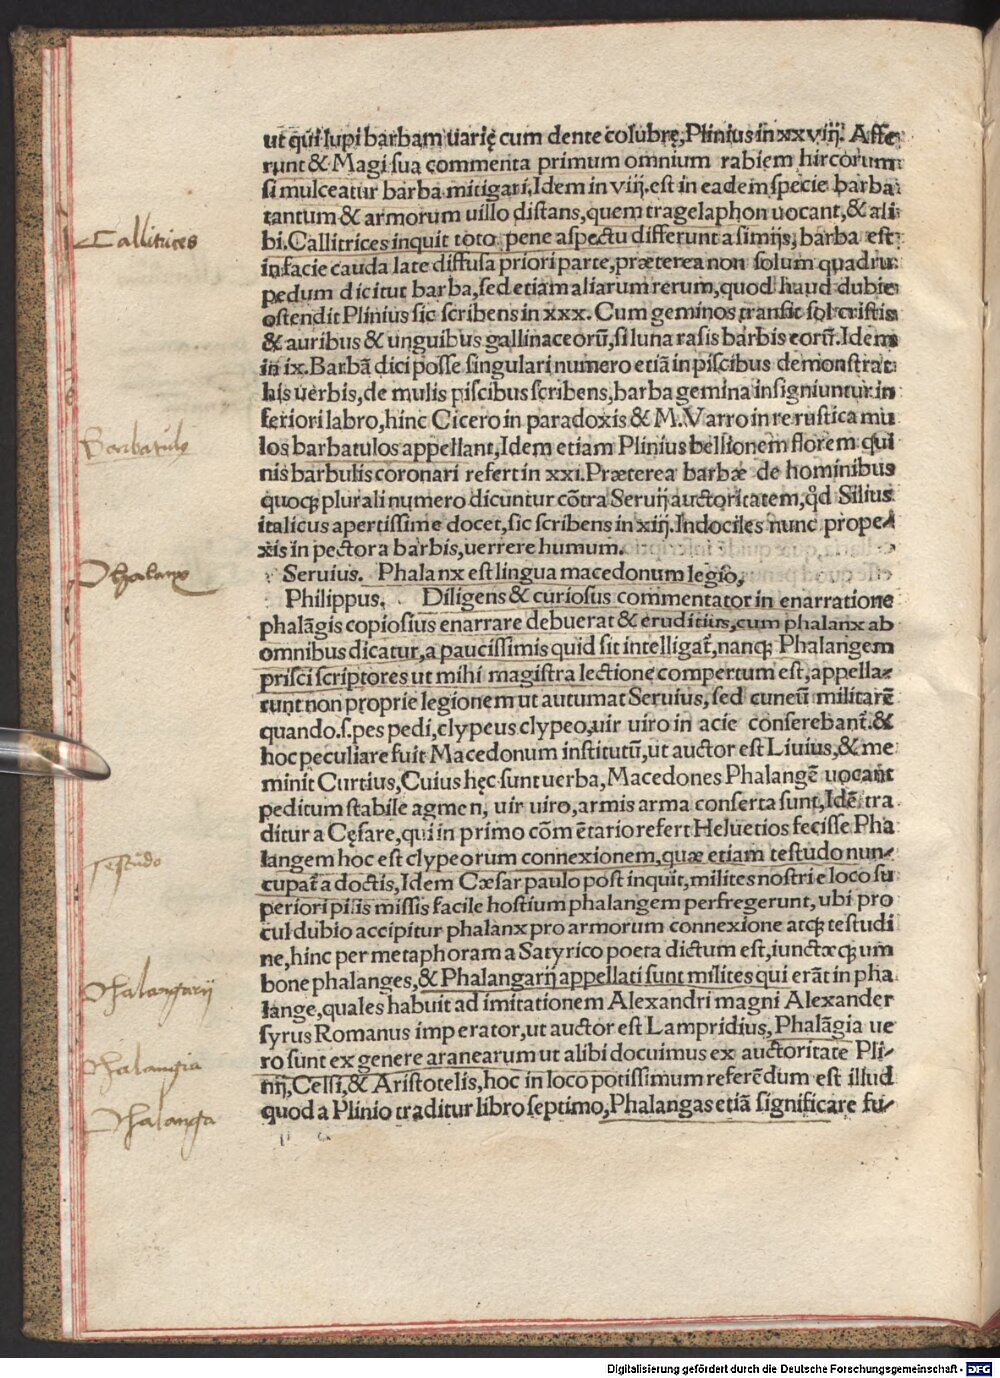 ut qui lupi barbam uarię cum dente colubrę, Plinius in xxviij. Affe
runt & Magi sua commenta primum omnium rabiem hircorum
si mulceatur barba mitigari. Idem in viij. est in eadem specie barba
tantum & armorum uillo distans, quem tragelaphon uocant, & ali
Callitrices
bi. Callitrices inquit toto pene aspectu differunt a simijs, barba est
in facie cauda late diffusa priori parte, præterea non solum quadru
pedum dicitur barba, sed etiam aliarum rerum, quod haud dubie
ostendit Plinius sic scribens in xxx. Cum geminos transit sol cristis
& auribus & unguibus gallinaceorū, si luna rasis barbis eorū. Idem
in ix. Barbā dici posse singulari numero etiā in piscibus demonstrat
his uerbis, de mulis piscibus scribens, barba gemina insigniuntur in
feriori labro, hinc Cicero in paradoxis & M. Varro in re rustica mu
Barbatulo
los barbatulos appellant, Idem etiam Plinius bellionem florem qui
nis barbulis coronari refert in xxi. Præterea barbæ de hominibus
quoqꝫ plurali numero dicuntur cōtra Seruij auctoritatem, qd̄ Silius
italicus apertissime docet, sic scribens in xiij. Indociles nunc prope-
xis in pectora barbis, uerrere humum.
Phalanx
Seruius. Phalanx est lingua macedonum legio,
Philippus. Diligens & curiosus commentator in enarratione
phalāgis copiosius enarrare debuerat & eruditius, cum phalanx ab
omnibus dicatur, a paucissimis quid sit intelligat̄, nanqꝫ Phalangem
prisci scriptores ut mihi magistra lectione compertum est, appella-
runt non proprie legionem ut autumat Seruius, sed cuneū militarē
quando .s. pes pedi, clypeus clypeo, uir uiro in acie conserebant̄. &
hoc peculiare fuit Macedonum institutū, ut auctor est Liuius, & me
minit Curtius, Cuius hęc sunt uerba, Macedones Phalangē uocant
peditum stabile agmen, uir uiro, armis arma conserta sunt, Idē tra
ditur a Cęsare, qui in primo cōmētario refert Heluetios fecisse Pha
Testudo
langem hoc est clypeorum connexionem, quæ etiam testudo nun-
cupat̄ a doctis, Idem Cæsar paulo post inquit, milites nostri e loco su
periori pilis missis facile hostium phalangem perfregerunt, ubi pro
cul dubio accipitur phalanx pro armorum connexione atqꝫ testudi
ne, hinc per metaphoram a Satyrico poeta dictum est, iunctæqꝫ um
Phalangarij
bone phalanges, & Phalangarij appellati sunt milites qui erāt in pha
lange, quales habuit ad imitationem Alexandri magni Alexander
syrus Romanus imperator, ut auctor est Lampridius, Phalāgia ue
Phalangia
ro sunt ex genere aranearum ut alibi docuimus ex auctoritate Pli-
nij, Celsi, & Aristotelis, hoc in loco potissimum referēdum est illud
Phalanga
quod a Plinio traditur libro septimo, Phalangas etiā significare fu-
Digitalisierung gefördert durch die Deutsche Forschungsgemeinschaft - DFG